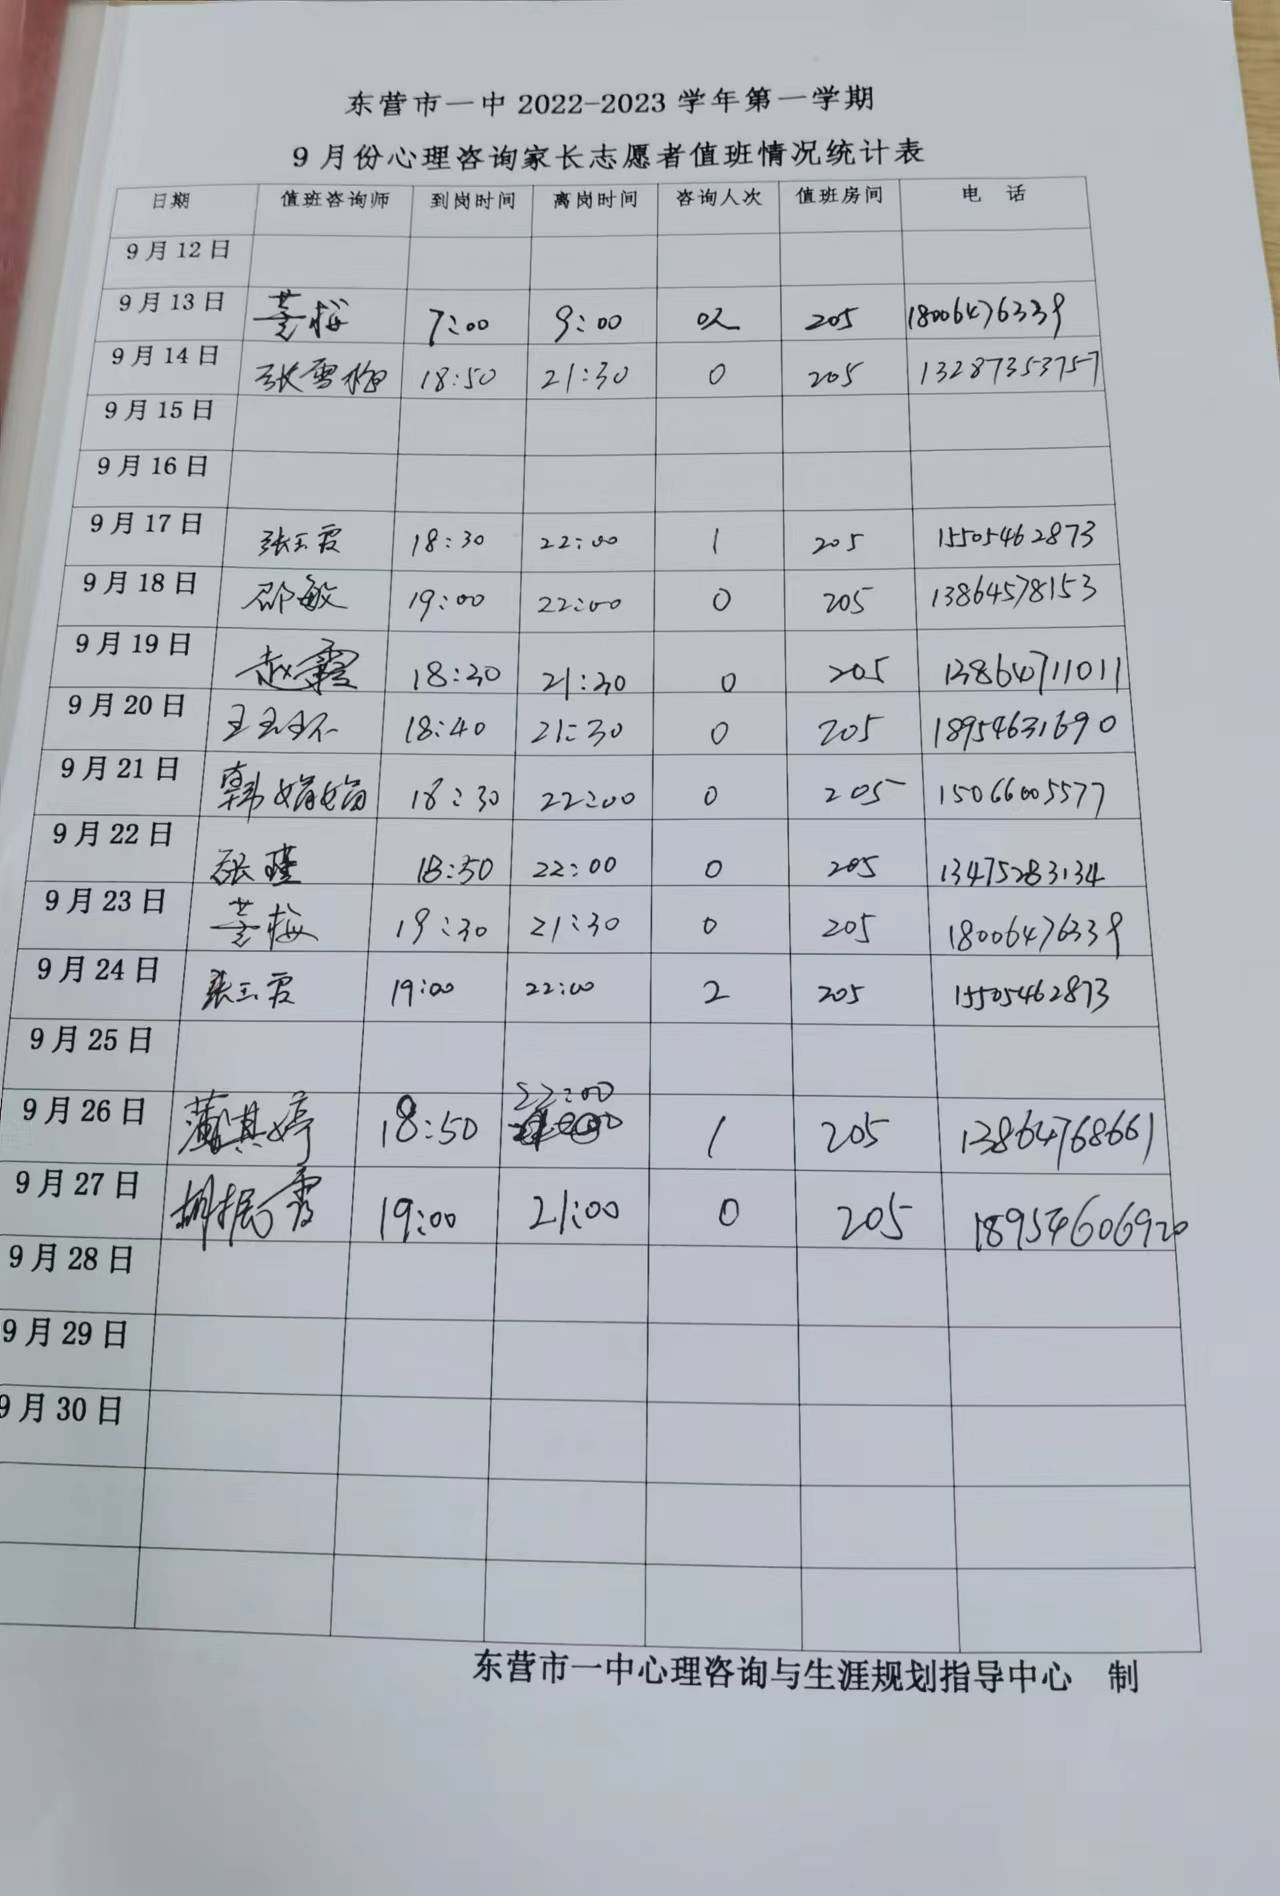 东营市一中 2022-2023 学年第一学期
9 月份心理咨询家长志愿者值班情况统计表
日期 值班咨询师 到岗时间 离岗时间 咨询人次 值班房间 电 话
9 月 12 日
9 月 13 日 7:00 9:00 205 18006476339
9 月 14 日 张雪梅 18:50 21:30 0 205 13287353757
9 月 15 日
9 月 16 日
9 月 17 日 张玉霞 18:30 22:00 1 205 15505462873
9 月 18 日 邵敏 19:00 22:00 0 205 13864578153
9 月 19 日 赵霞 18:30 21:30 0 205 13864711011
9 月 20 日 18:40 21:30 0 205 18954631690
9 月 21 日 韩娟娟 18:30 22:00 0 205 15066005577
9 月 22 日 张瑾 18:50 22:00 0 205 13475283134
9 月 23 日 19:30 21:30 0 205 18006476339
9 月 24 日 张玉霞 19:00 22:00 2 205 15505462873
9 月 25 日
9 月 26 日 薄其婷 18:50 22:00 1 205 13864768661
9 月 27 日 胡振霞 19:00 21:00 0 205 18954606920
9 月 28 日
9 月 29 日
9 月 30 日
东营市一中心理咨询与生涯规划指导中心 制